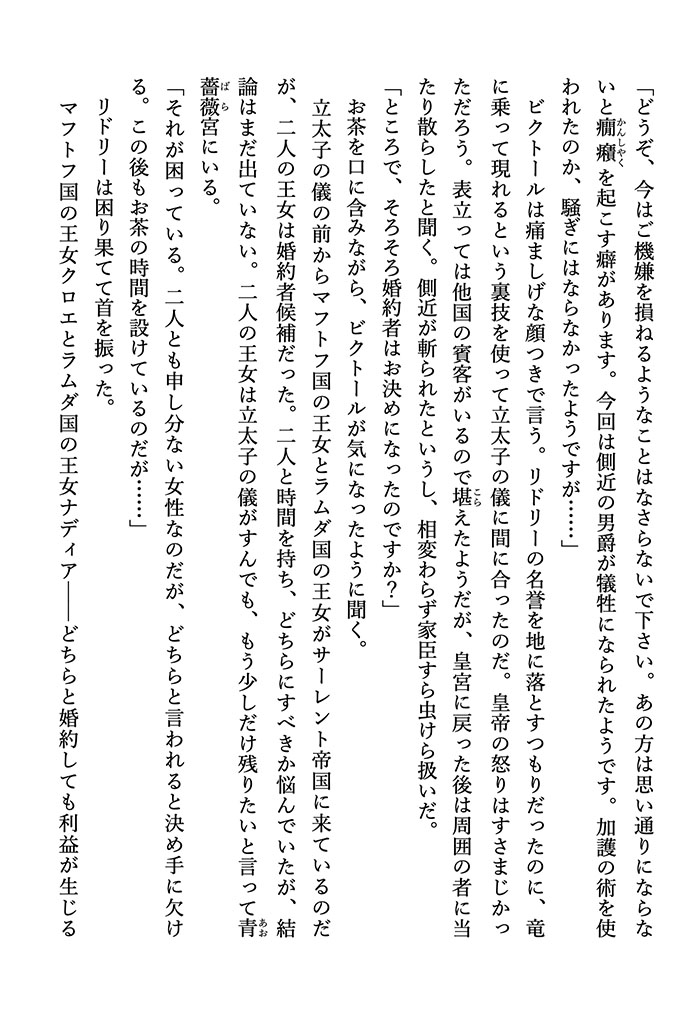 「どうぞ、今はご機嫌を損ねるようなことはなさらないで下さい。あの方は思い通りにならな
いと癇癪を起こす癖があります。今回は側近の男爵が犠牲になられたようです。加護の術を使
われたのか、騒ぎにはならなかったようですが……」
ビクトールは痛ましげな顔つきで言う。リドリーの名誉を地に落とすつもりだったのに、竜
に乗って現れるという裏技を使って立太子の儀に間に合ったのだ。皇帝の怒りはすさまじかっ
ただろう。表立っては他国の賓客がいるので堪えたようだが、皇宮に戻った後は周囲の者に当
たり散らしたと聞く。側近が斬られたというし、相変わらず家臣すら虫けら扱いだ。
「ところで、そろそろ婚約者はお決めになったのですか？」
お茶を口に含みながら、ビクトールが気になったように聞く。
立太子の儀の前からマフトフ国の王女とラムダ国の王女がサーレント帝国に来ているのだ
が、二人の王女は婚約者候補だった。二人と時間を持ち、どちらにすべきか悩んでいたが、結
論はまだ出ていない。二人の王女は立太子の儀がすんでも、もう少しだけ残りたいと言って青
薔薇宮にいる。
「それが困っている。二人とも申し分ない女性なのだが、どちらと言われると決め手に欠け
る。この後もお茶の時間を設けているのだが……」
リドリーは困り果てて首を振った。
マフトフ国の王女クロエとラムダ国の王女ナディア――どちらと婚約しても利益が生じる